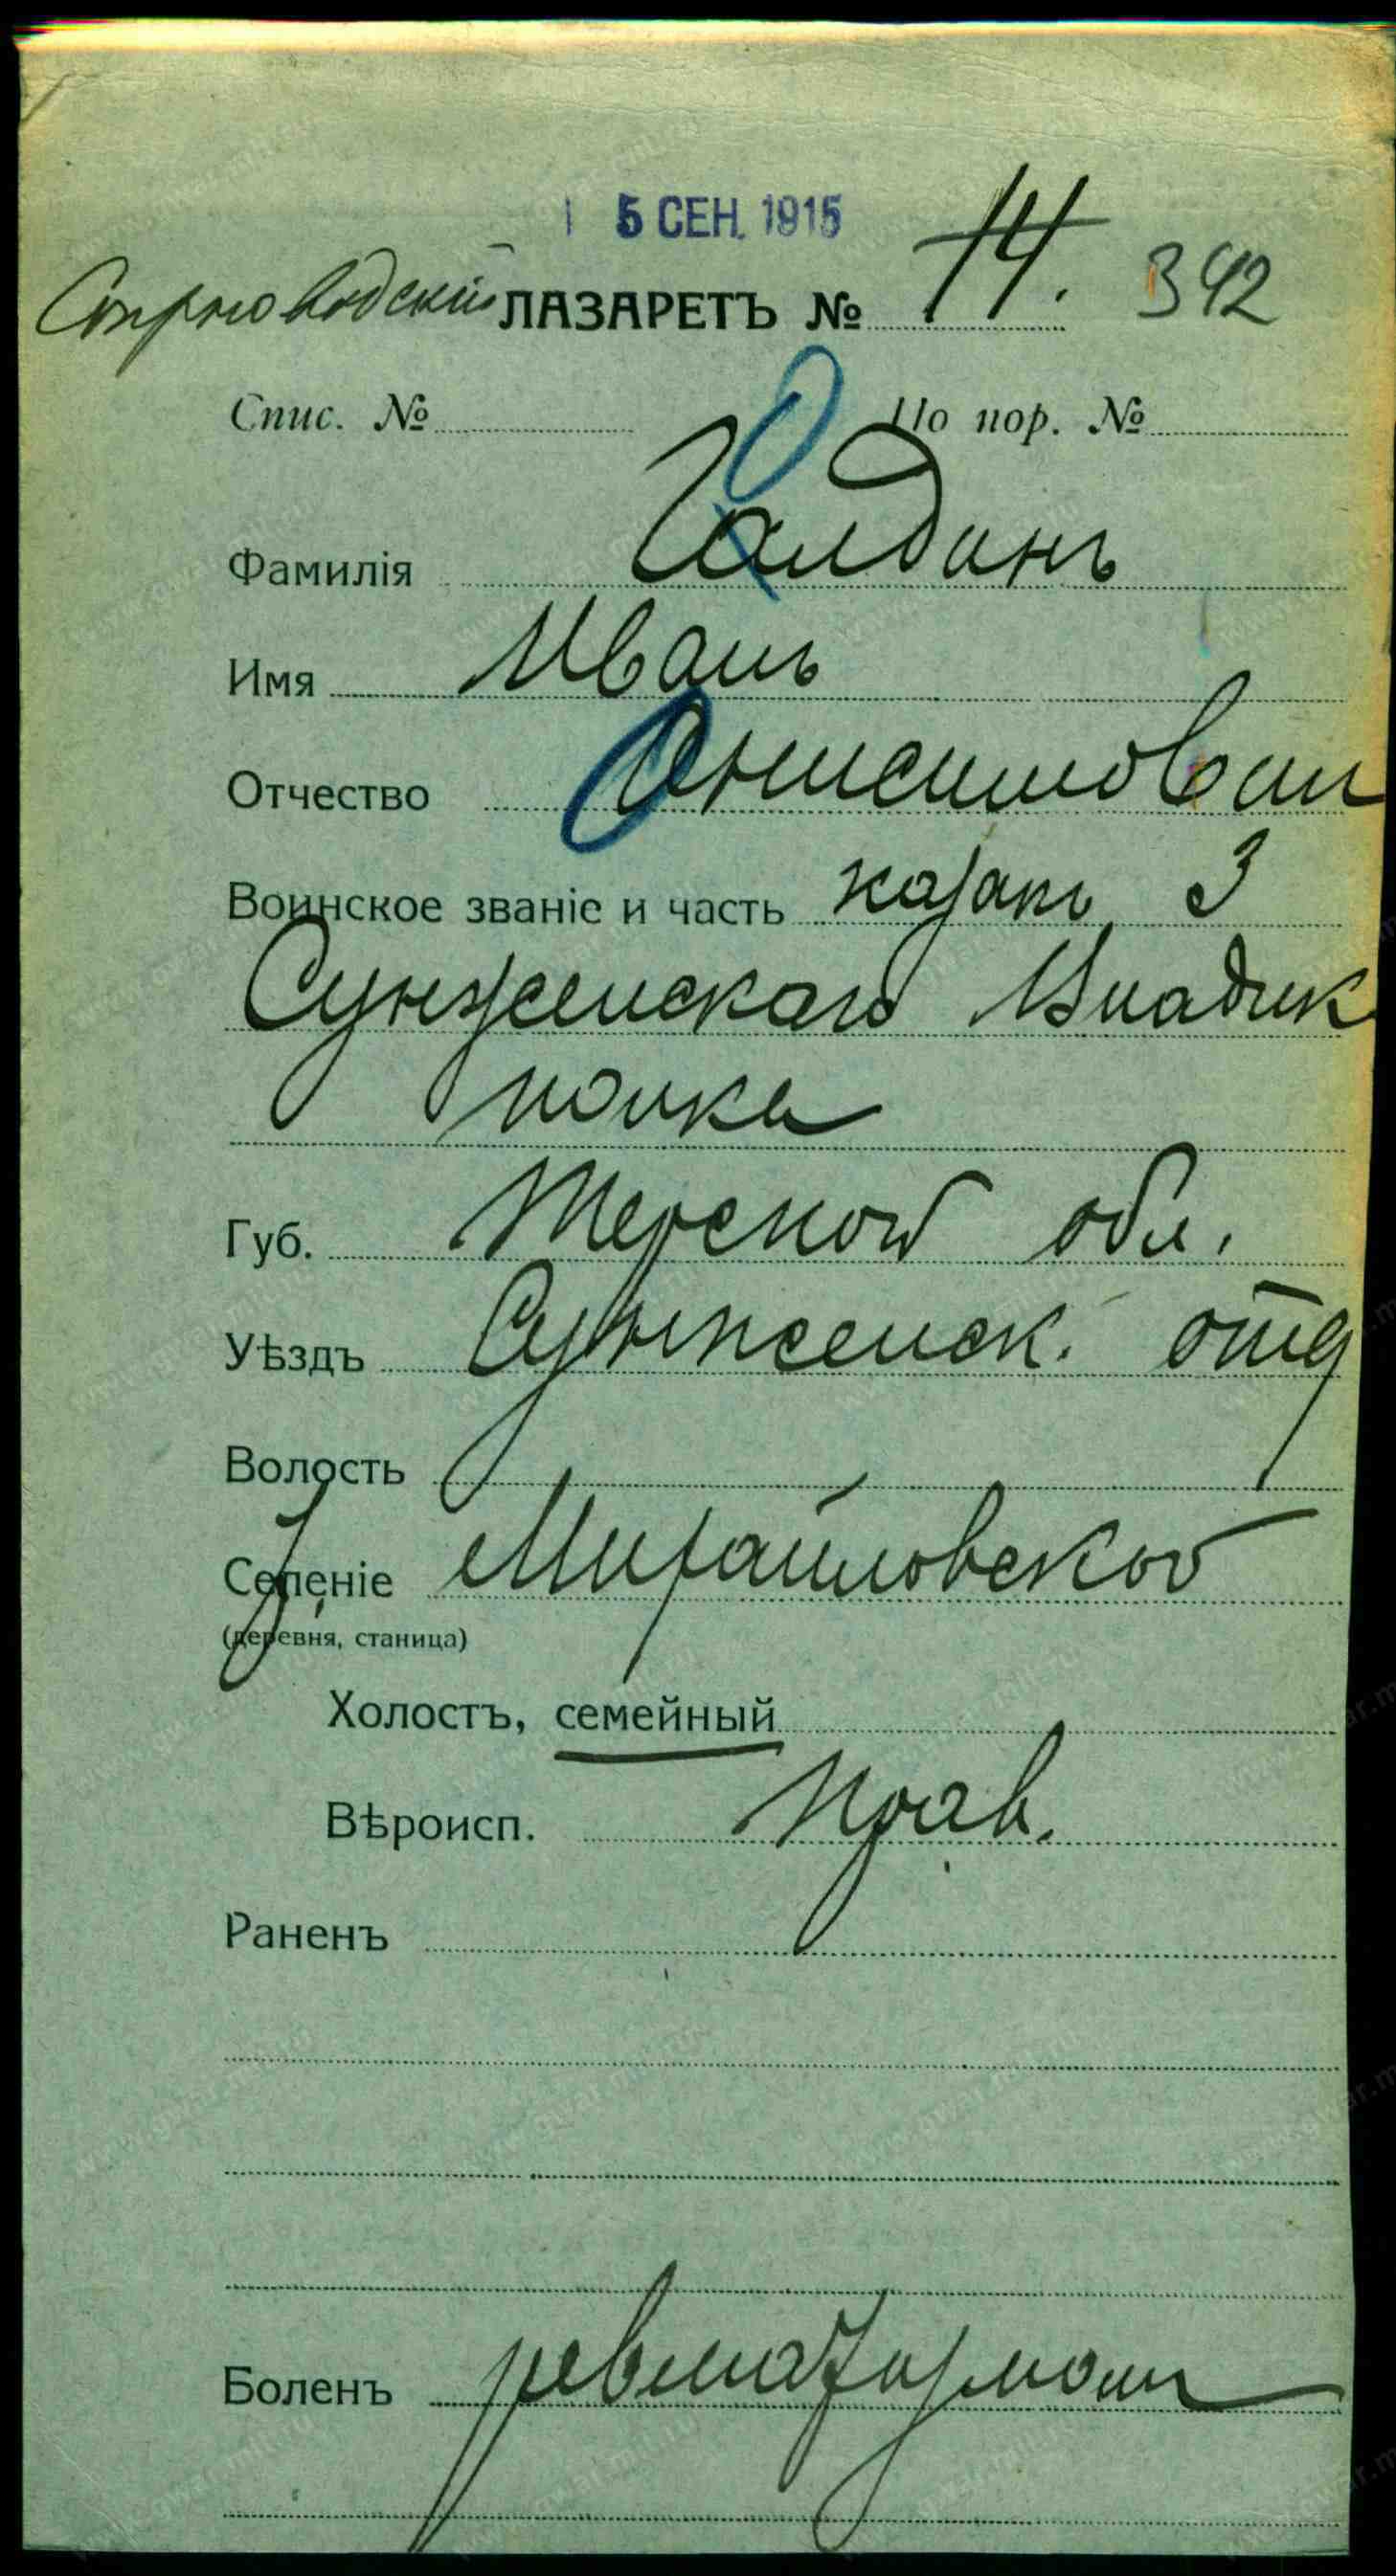 5 СЕН. 1915
ЛАЗАРЕТЪ № 14. 342
Спис. № По пор. №
Фамилія Галдинъ
Имя Иванъ
Отчество Онисимович
Воинское званіе и часть казакъ 3
Сунженскаго Владик
полка
Губ. Терской обл.
Уѣздъ Сунженск. отд
Волость
Селеніе Михайловской
(деревня, станица)
Холостъ, семейный
Вѣроисп. Прав.
Раненъ
Боленъ ревматизмом